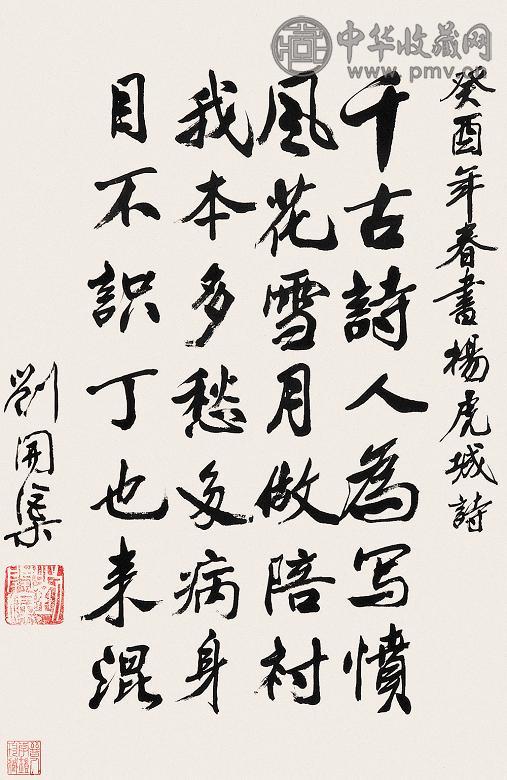 中华收藏网
www.pmv.cn
癸酉年春書楊虎城詩
千古詩人為写憤
風花雪月做陪衬
我本多愁多病身
目不識丁也来混
劉開渠